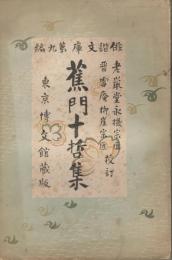 俳諧文庫第九編
老鼠堂永機宗匠
宗匠
校訂
蕉門十哲集
東京博文館蔵版